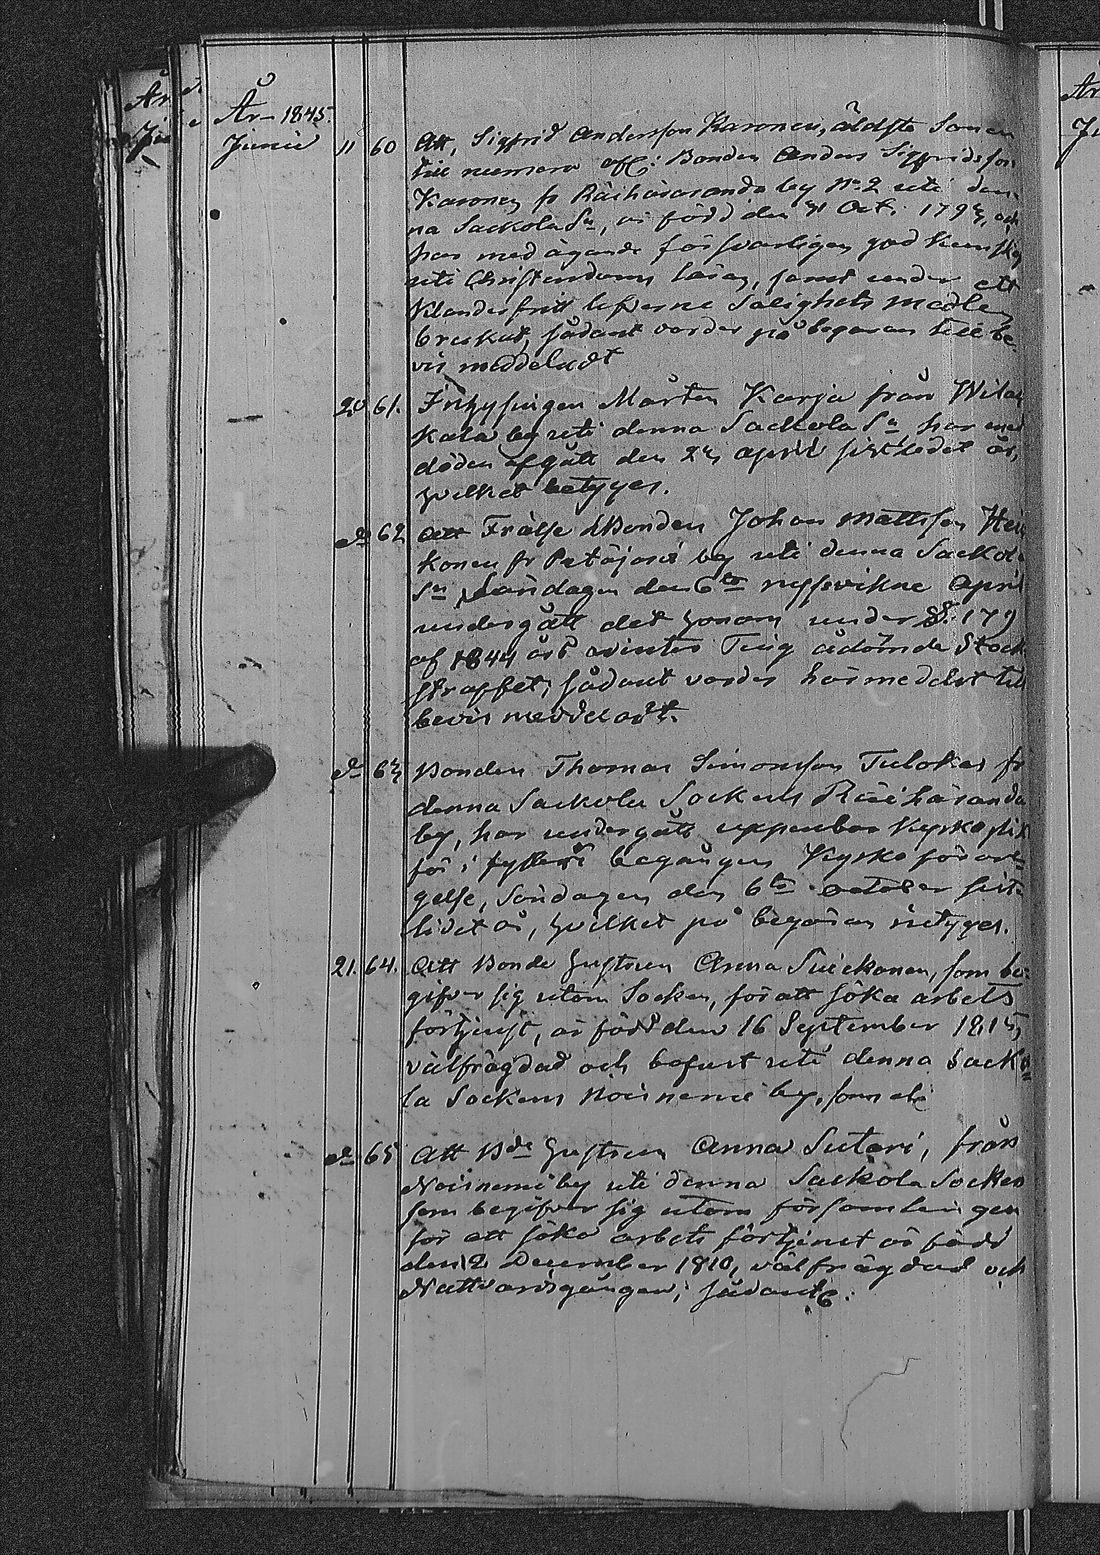 År 1845.
Junii 11 60 Att, Sigfrid Andersson Karonen, äldste Sonen
till numera afl: Bonden Anders Sigfridsson
Karonen fr Räihäranda by No 2 uti den-
na Sackola Sn, är född den 31 Oct: 1793, och
har med ägande försvarligen god kunskap
uti Christendoms läran, samt under ett
klanderfritt lefverne Salighets medlen
bruskat, sådant varder på begäran till be-
vis meddeladt
20 61. Inhysingen Mårten Karja från Wilak
kala by uti denna Sackola Sn har med
döden afgått den 23 april sistledet år,
hvilket betyges.
do 62 Att Frälse Bonden Johan Mattsson Hei
konen fr Petäjärvi by uti denna Sackola
Sn Söndagen den 6te nyssvikne April
undergått det honom under §. 179
af 1844 års winter Ting ådömda Stock
straffet, sådant varder härmedelst till
bevis meddeladt.
do 63 Bonden Thomas Simonsson Tulokas fr
denna Sackola Sockens Räihäranda
by, har undergått uppenbar Kyrkoplikt
för i fylleri begången Kyrko förar-
gelse, Söndagen den 6te October sist-
lidet år, hvilket på begäran intyges.
21. 64. Att Bonde hustrun Anna Suickanen, som be-
gifver sig utom Socken, för att söka arbets
förtjenst, är född den 16 September 1815,
välfrägdad och bofast uti denna Sacko-
la Sockens Noisnemi by, som etc
do 65 Att Bde hustrun Anna Sutari, från
Noisnemi by uti denna Sackola Socken
som begifver sig utom församlingen
för att söka arbets förtjenst är född
den 12 December 1810, välfrägdad och
Nattvardsgången; sådant etc.